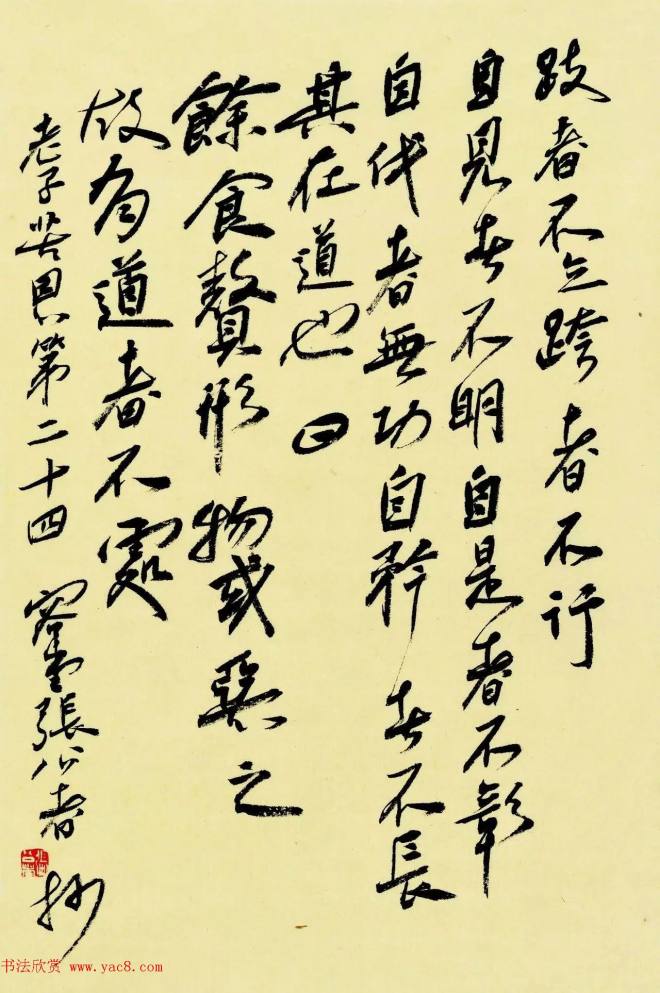 跂者不立跨者不行
自見者不明自是者不彰
自伐者無功自矜者不長
其在道也曰
餘食贅形物或惡之
故有道者不處
老子苦縣第二十四 窑堂張公者
抄
书法欣赏 www.yac8.com